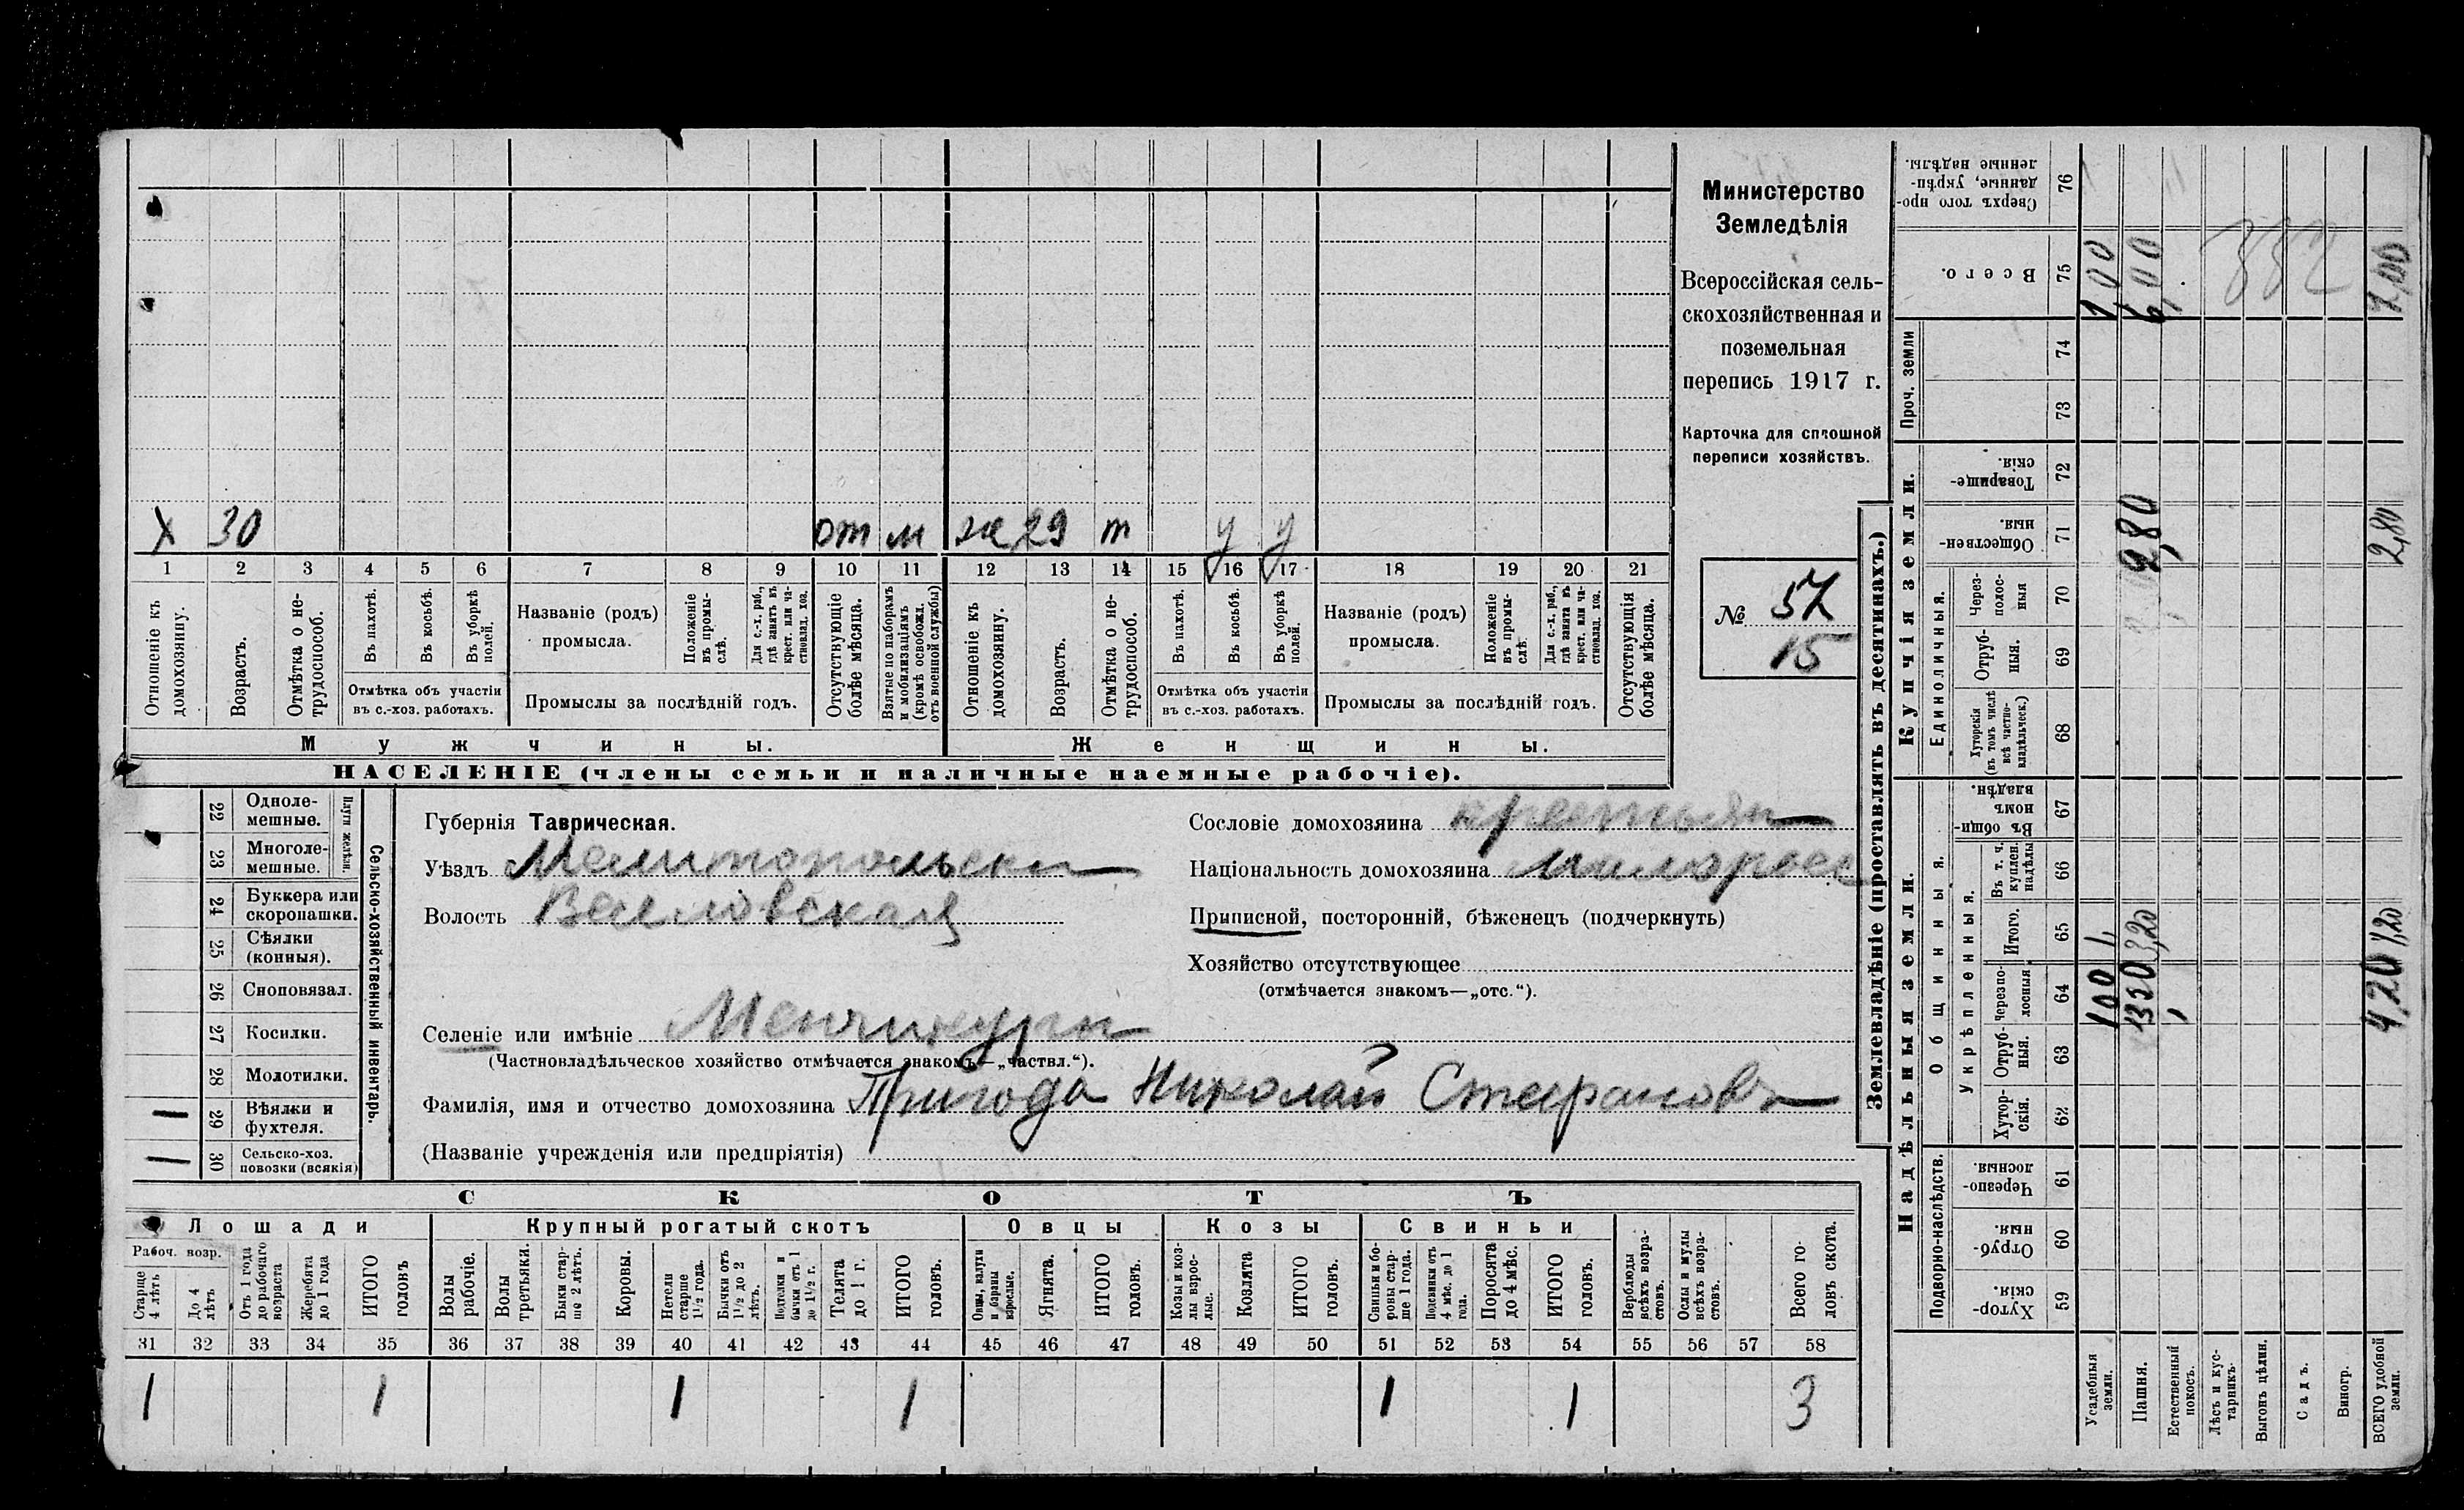 Министерство
Земледѣлія
Всероссійская сель-
скохозяйственная и
поземельная
перепись 1917 г.
Карточка для сплошной
переписи хозяйствъ.
№ 57
15
X 30 от м ж 29 т у у
1 2 3 4 5 6 7 8 9 10 11 12 13 14 15 16 17 18 19 20 21
Отношеніе къ домохозяину.
Возрастъ.
Отмѣтка о не-трудоспособ.
Въ пахотѣ.
Въ косьбѣ.
Въ уборкѣ полей.
Отмѣтка объ участіи
въ с.-хоз. работахъ.
Названіе (родъ)
промысла.
Положеніе въ промы-слѣ.
Для с.-х. раб., гдѣ занятъ въ крест. или ча-стновлад. хоз.
Промыслы за послѣдній годъ.
Отсутствующіе болѣе мѣсяца.
Взятые по наборамъ и мобилизаціямъ (кромѣ освобожд. отъ военной службы)
Отношеніе къ домохозяину.
Возрастъ.
Отмѣтка о не-трудоспособ.
Въ пахотѣ.
Въ косьбѣ.
Въ уборкѣ полей.
Отмѣтка объ участіи
въ с.-хоз. работахъ.
Названіе (родъ)
промысла.
Положеніе въ промы-слѣ.
Для с.-х. раб., гдѣ занята въ крест. или ча-стновлад. хоз.
Промыслы за послѣдній годъ.
Отсутствующія болѣе мѣсяца.
Мужчины.
Женщины.
НАСЕЛЕНІЕ (члены семьи и наличные наемные рабочіе).
Сельско-хозяйственный инвентарь.
Плуги желѣзн.
22 Однолемешные.
23 Многолемешные.
24 Буккера или скоропашки.
25 Сѣялки (конныя).
26 Сноповязал.
27 Косилки.
28 Молотилки.
1 29 Вѣялки и фухтеля.
1 30 Сельско-хоз. повозки (всякія)
Губернія Таврическая.
Уѣздъ Мелитопольск
Волость Веселовская
Селеніе или имѣніе Менчикуры
(Частновладѣльческое хозяйство отмѣчается знакомъ—„частвл.“).
Фамилія, имя и отчество домохозяина Пригода Николай Стефановъ
(Названіе учрежденія или предпріятія)
Сословіе домохозяина крестьян
Національность домохозяина малоросс
Приписной, посторонній, бѣженецъ (подчеркнуть)
Хозяйство отсутствующее
(отмѣчается знакомъ—„отс.“).
СКОТЪ
Лошади
Крупный рогатый скотъ
Овцы
Козы
Свиньи
Рабоч. возр.
Старше 4 лѣтъ
До 4 лѣтъ
Отъ 1 года до рабочаго возраста
Жеребята до 1 года
ИТОГО головъ
Волы рабочіе.
Волы третьяки.
Быки стар-ше 2 лѣтъ.
Коровы.
Нетели старше 1½ года.
Бычки отъ 1½ до 2 лѣтъ.
Подтелки и бычки отъ 1 до 1½ г.
Телята до 1 г.
ИТОГО головъ.
Овцы, валухи и бараны взрослые.
Ягнята.
ИТОГО головъ.
Козы и коз-лы взрос-лые.
Козлята
ИТОГО головъ.
Свиньи и бо-ровы стар-ше 1 года.
Подсвинки отъ 4 мѣс. до 1 года.
Поросята до 4 мѣс.
ИТОГО головъ.
Верблюды всѣхъ возра-стовъ.
Ослы и мулы всѣхъ возра-стовъ.
Всего го-ловъ скота.
31 32 33 34 35 36 37 38 39 40 41 42 43 44 45 46 47 48 49 50 51 52 53 54 55 56 57 58
1 1 1 1 1 1 3
Землевладѣніе (проставлять въ десятинахъ.)
Надѣльныя земли.
Купчія земли.
Проч. земли
Подворно-наслѣдств.
Общинныя.
Укрѣпленныя.
Единоличныя.
Хутор-скія. 59
Отруб-ныя. 60
Черезпо-лосныя. 61
Хутор-скія. 62
Отруб-ныя. 63
Черезпо-лосныя 64
Итого. 65
Въ т. ч. куплен. надѣлы 66
Въ общин-номъ владѣн. 67
Хуторскія (въ томъ числѣ всѣ частно-владѣльческ.) 68
Отруб-ныя. 69
Через-полос-ныя 70
Обществен-ныя. 71
Товарище-скія. 72
73
74
Всего. 75
Сверхъ того про-данные, укрѣп-ленные надѣлы. 76
Усадебныя земли. 1,00
Пашня. 3,20 2,80 6,00
Естественный покосъ.
Лѣсъ и кус-тарникъ.
Выгонъ цѣлин.
Садъ.
Виногр.
ВСЕГО удобной земли. 4,20 2,80 7,00